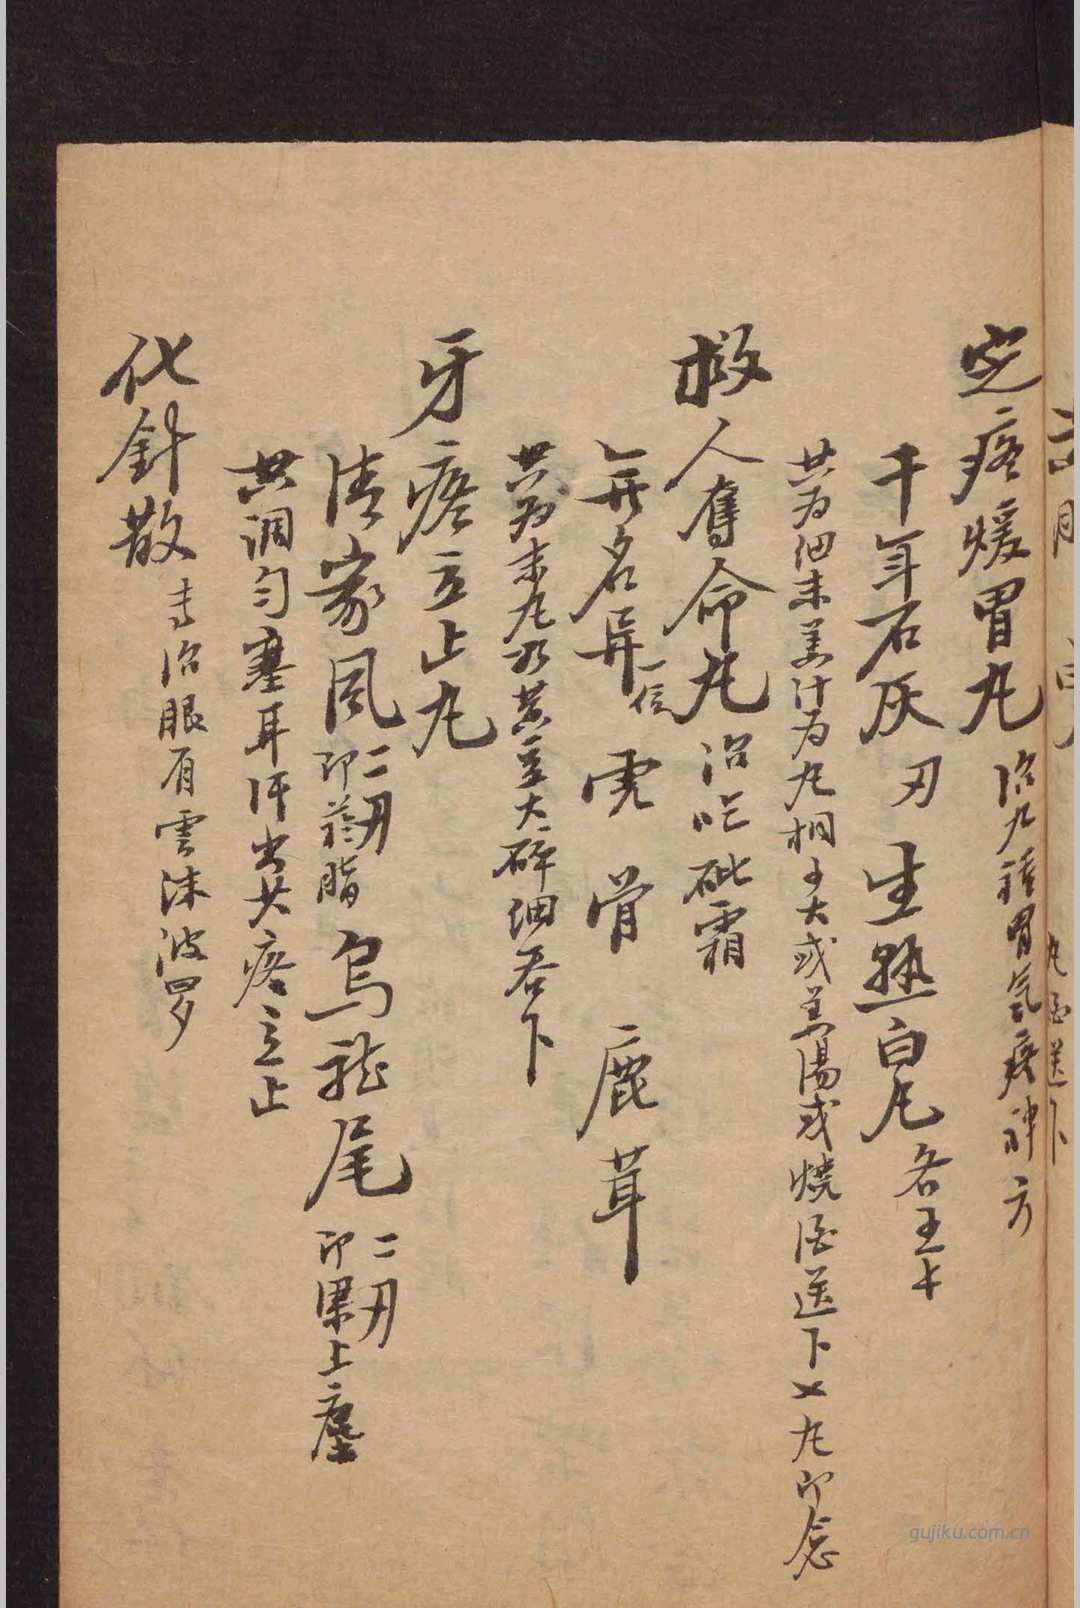 定疼煖胃丸 治九種胃氣疼神方
千年石灰刃 生熟白凡各五十
共为细末姜汁为丸桐子大或姜湯或燒酒送下 丸即愈
救人奪命丸 治吃砒霜
無名异一 虎骨 鹿茸
共为末丸如黃豆大碎细吞下
牙疼立止丸
清家風二刃即 脂 烏龍尾二刃即梁上塵
共调匀塞耳汗出其疼立止
化針散 专治眼有雲 波罗
丸酒送下
gujiku.com.cn